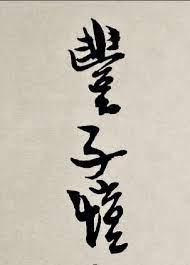 豐子愷